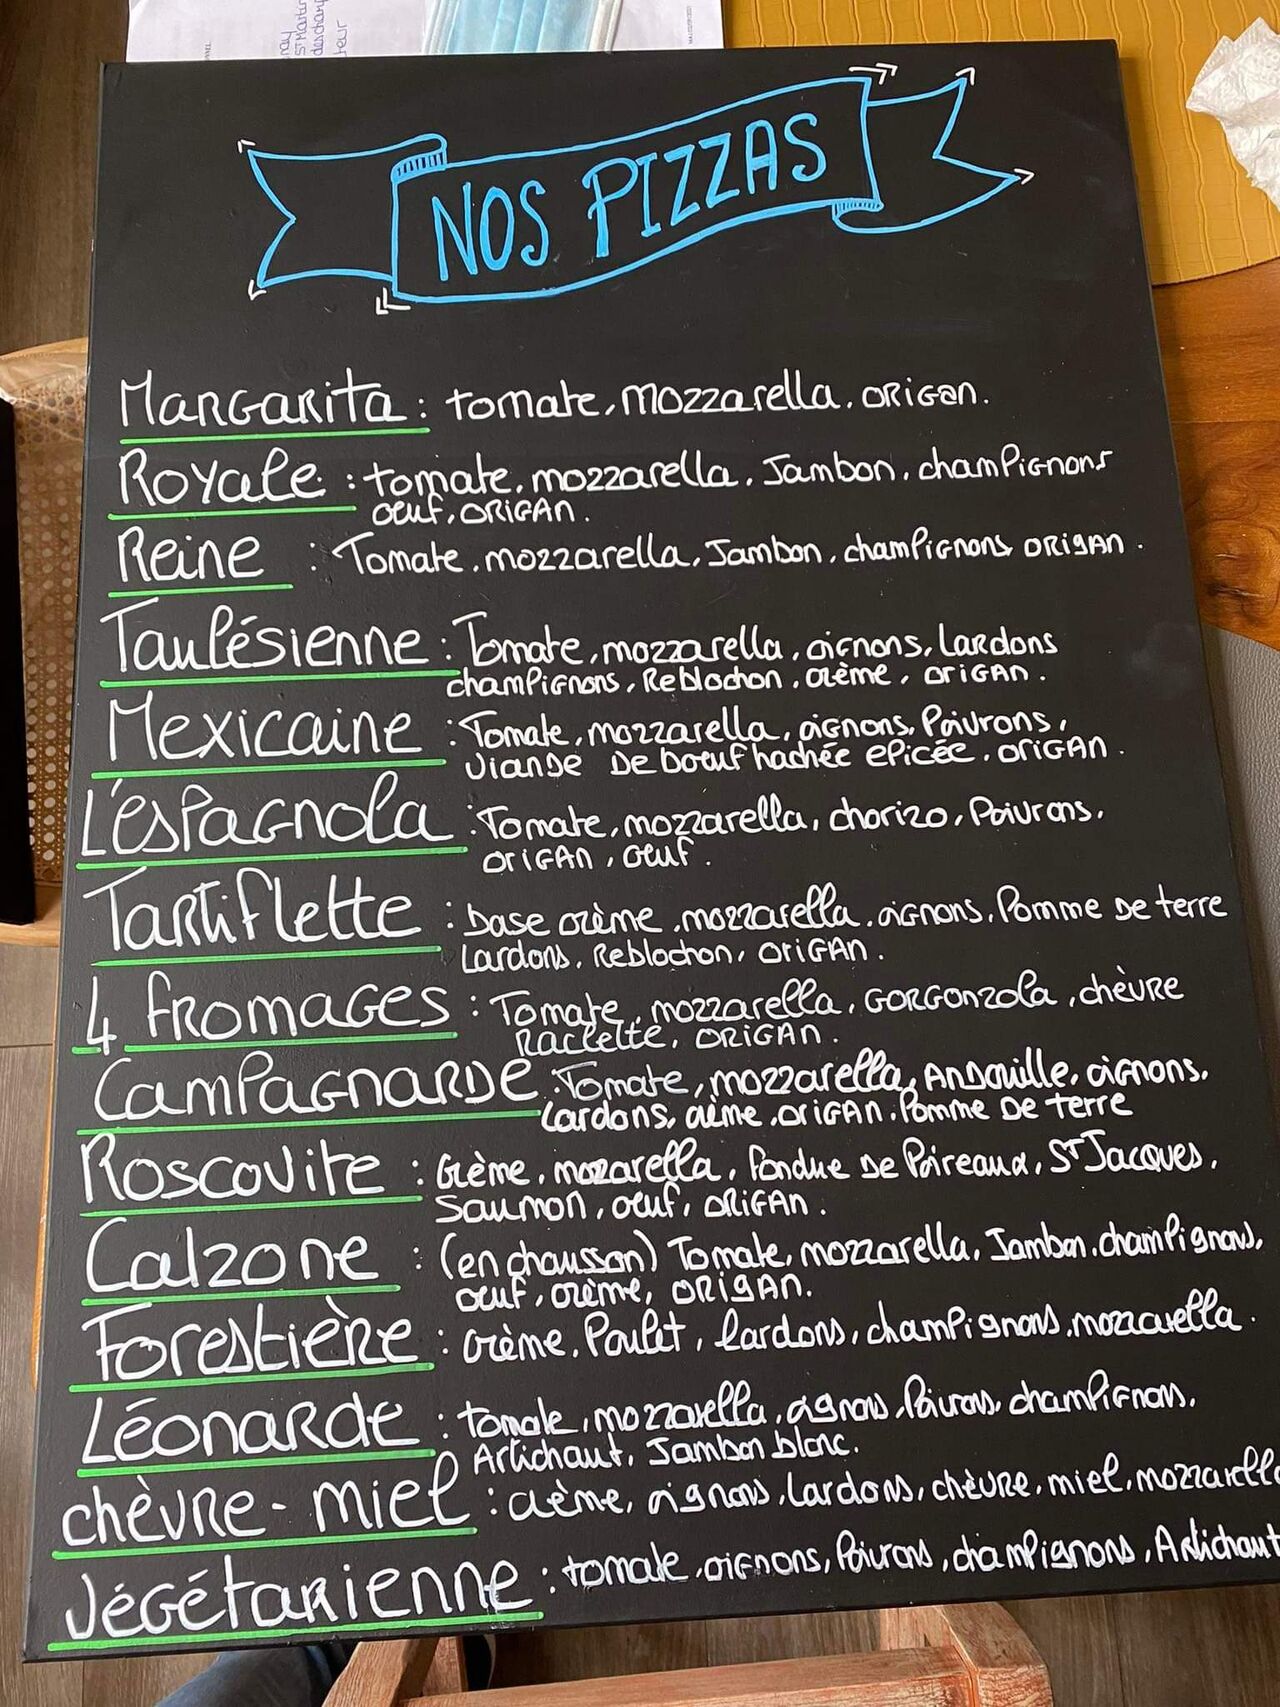 NOS PIZZAS
Margarita : tomate, mozzarella, origan.
Royale : tomate, mozzarella, Jambon, champignons
oeuf, origan.
Reine : Tomate, mozzarella, Jambon, champignons origan.
Taulésienne : Tomate, mozzarella, oignons, lardons
champignons, Reblochon, crème, origan.
Mexicaine : Tomate, mozzarella, oignons, Poivrons,
viande de boeuf hachée epicée, origan.
L'espagnola : Tomate, mozzarella, chorizo, Poivrons,
origan, oeuf.
Tartiflette : base crème, mozzarella, oignons, Pomme de terre
Lardons, Reblochon, origan.
4 fromages : Tomate, mozzarella, Gorgonzola, chèvre
raclette, origan.
Campagnarde : Tomate, mozzarella, Andouille, oignons,
lardons, crème, origan, Pomme de terre
Roscovite : Crème, mozarella, fondue de Poireaux, St Jacques,
Saumon, oeuf, origan.
Calzone : (en chausson) Tomate, mozzarella, Jambon, champignons,
oeuf, crème, origan.
Forestière : Crème, Poulet, lardons, champignons, mozzarella.
Léonarde : tomate, mozzarella, oignons, Poivrons, champignons,
Artichaut, Jambon blanc.
chèvre-miel : crème, oignons, lardons, chèvre, miel, mozzarella
Végétarienne : tomate, oignons, Poivrons, champignons, Artichaut